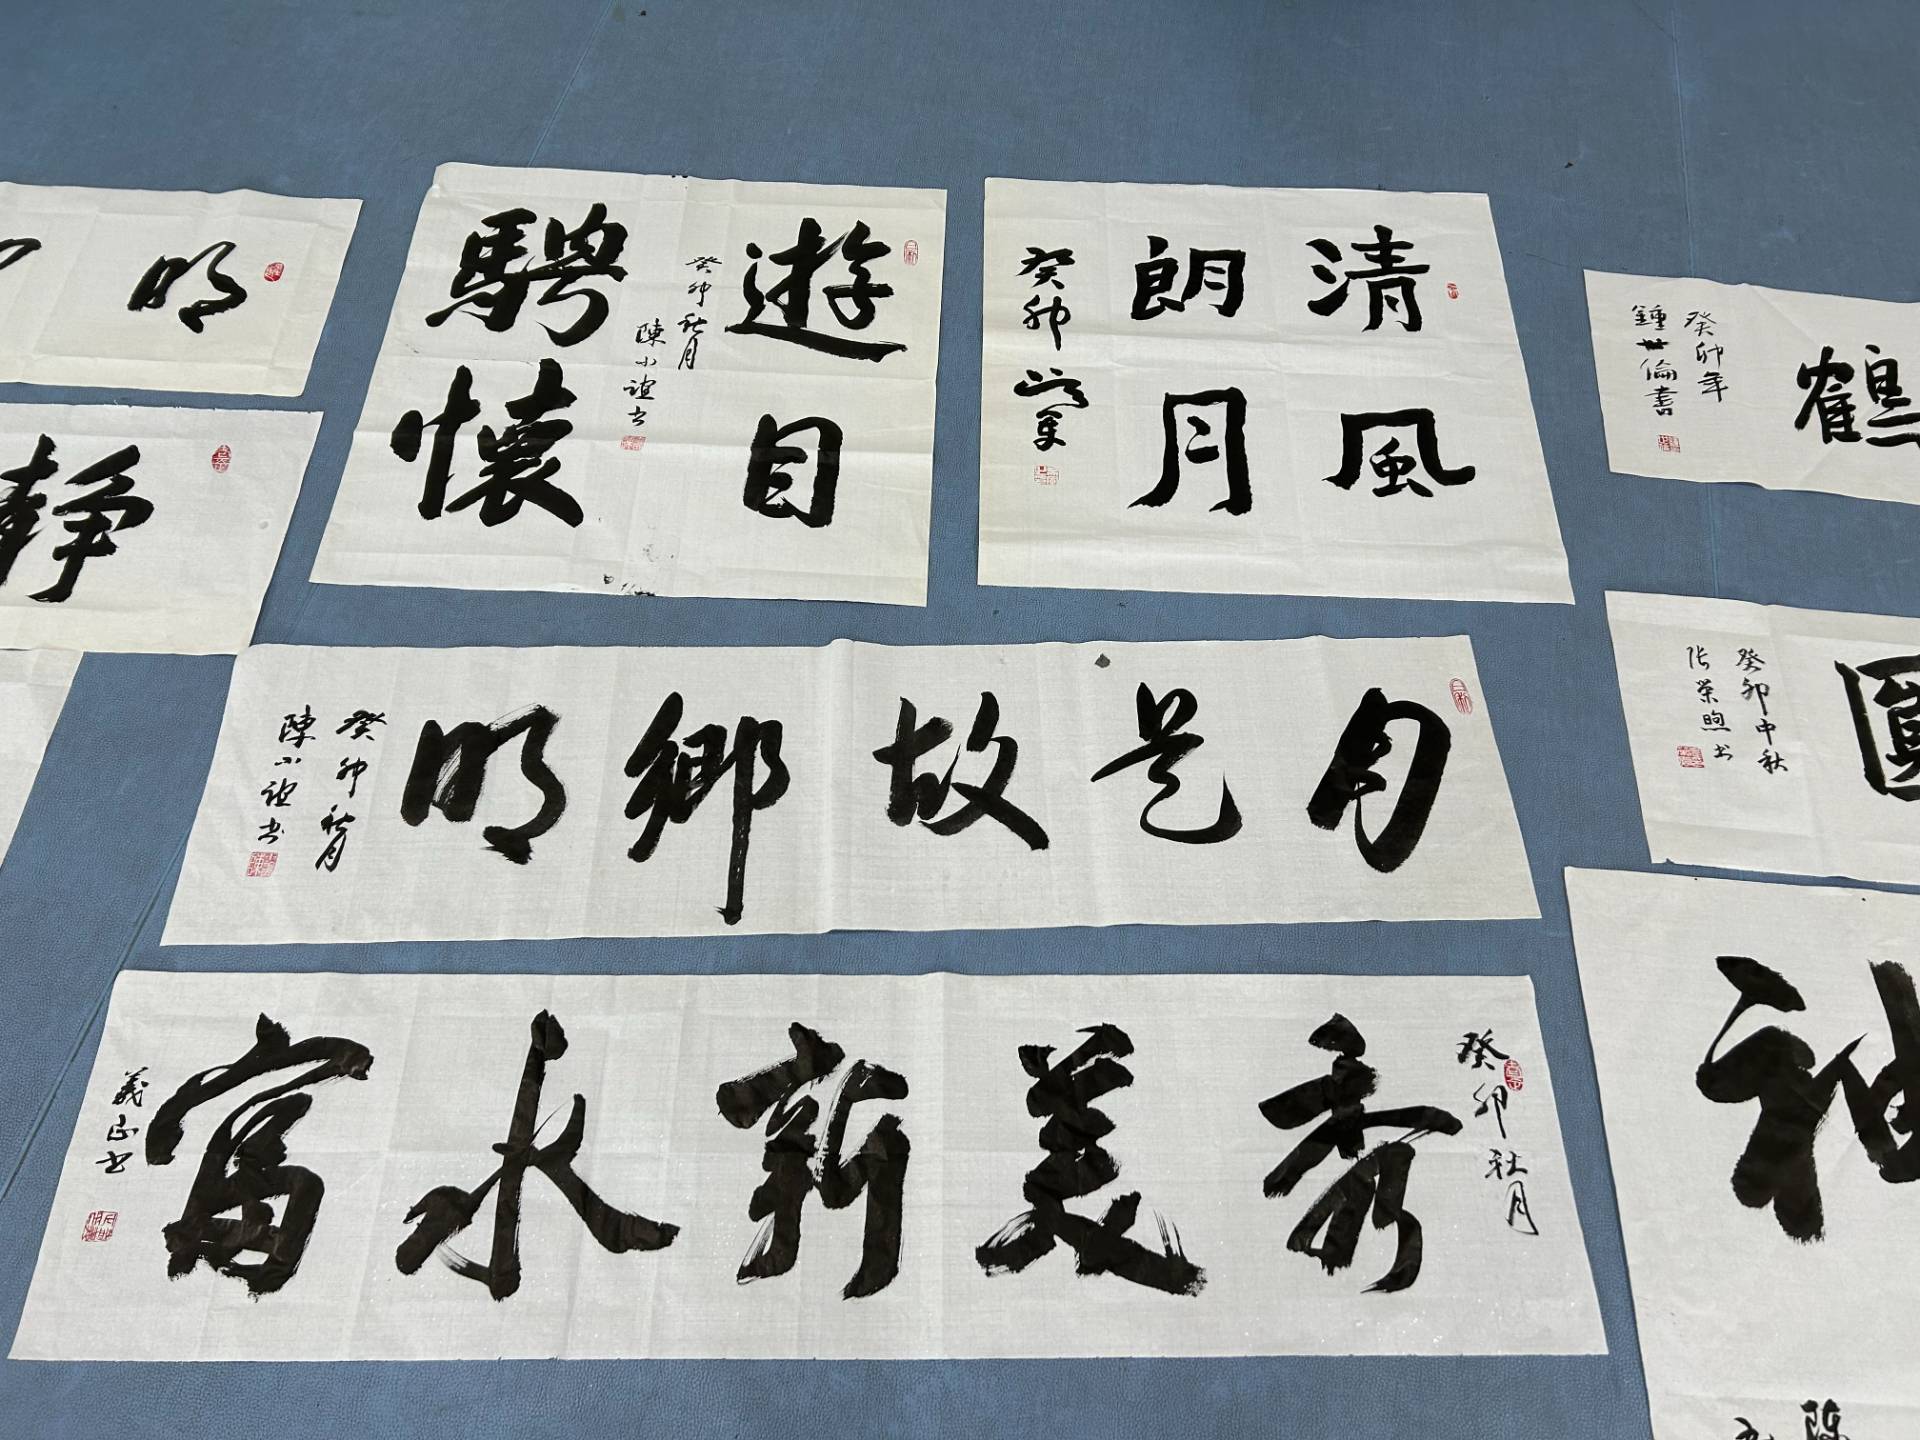 明
静
遊目
騁懷
癸卯秋月
陳小誼书
清風
朗月
癸卯
鶴
癸卯年
鍾世倫書
圓
癸卯中秋
张荣煦书
月是故鄉明
癸卯秋月
陳小誼书
癸卯秋月
秀美新水富
義正书
神
陳